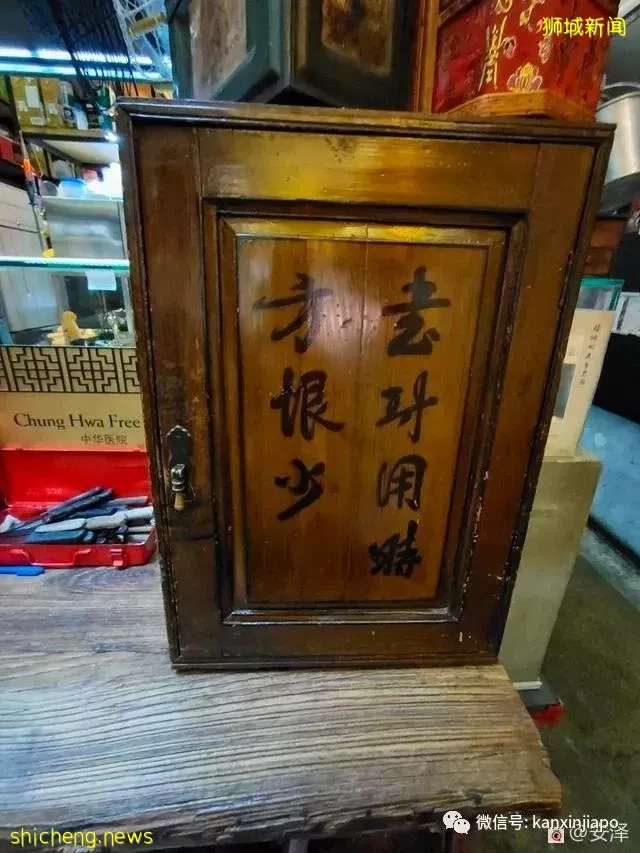 狮城新闻
書到用時
方恨少
Chung Hwa Free
中华医院
微信号: kanxinjiapo
@安泽
shicheng.news